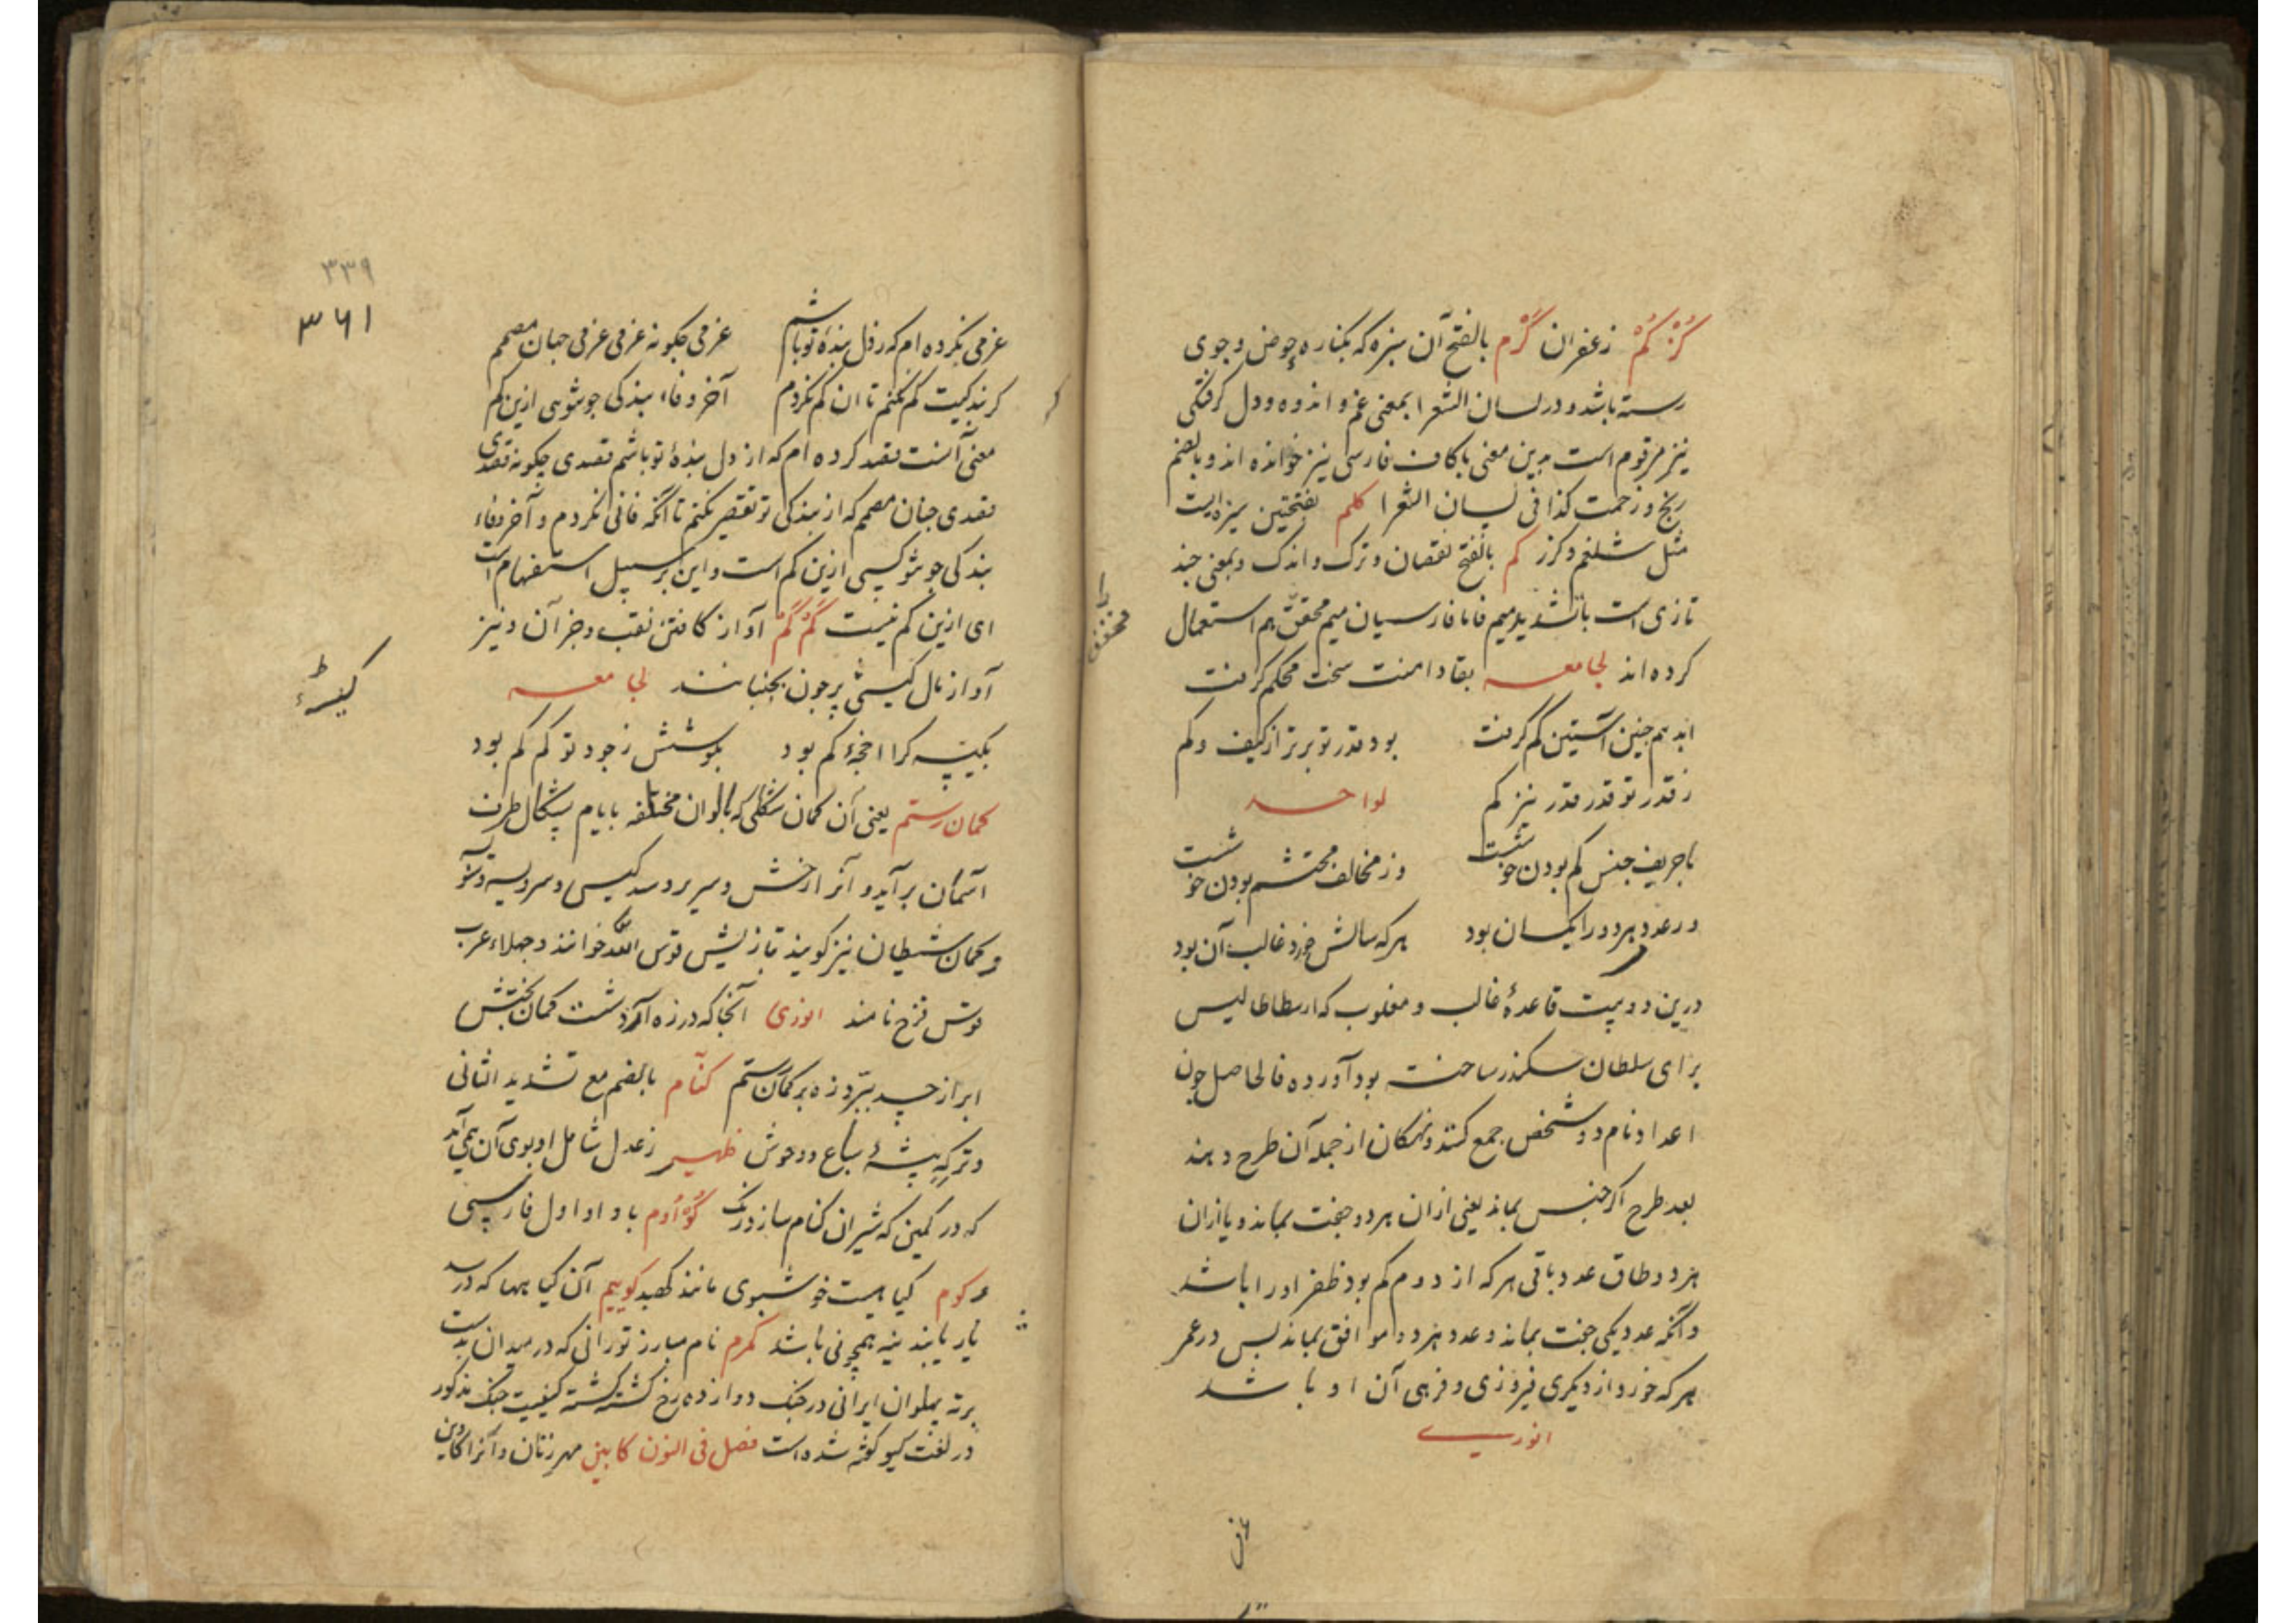 كُرْكُمْ زعفران كَرْم بالفتح آن سبزه که بکناره حوض و جوی
رسته باشد و در لسان الشعرا بمعنی غم و اندوه و دل گرفتگی
نیز مرقوم است بدین معنی با کاف فارسی نیز خوانده اند و بالضم
رنج و زحمت کذا فی لسان الشعرا کلم بفتحتین سبزه ایست
مثل شلغم و کزر کم بالفتح نقصان و ترک و اندک و بمعنی چند
تازی است با تشدید میم فاما فارسیان میم مخفف هم استعمال
کرده اند لجامعه بقا دامنت سخت محکم گرفت
ابد هم چنین آستین کم گرفت بود قدر تو برتر از کیف و کم
ز قدر تو قدر قدر نیز کم لواحد
با حریف جنس کم بودن خوشست وز مخالف محتشم بودن خوشست
در عدد هر دو را یکسان بود هر که سالش خرد غالب آن بود
درین دو بیت قاعدهٔ غالب و مغلوب که ارسطاطالیس
برای سلطان سکندر ساخته بود آورده فالحاصل چون
اعداد نام دو شخص جمع کنند و نهگان از جمله آن طرح دهند
بعد طرح اگر جنس بماند یعنی ازان هر دو جفت بماند و یا ازان
هر دو طاق عدد باقی هر که از دوم کم بود ظفر او را باشد
و آنگه عدد یکی جفت بماند و عدد هر دو موافق بماند پس در عمر
هر که خورد از دیگری فیروزی و فرهی آن او باشد
انوری
مخفف را
عزمی
۳۳۹
۳۶۱
عزمی بکرده ام که ز دل بندهٔ تو باشم عزمی چگونه عزمی عزمی چنان مصمم
کر بندگیت کم نکنم تا ان کم نکردم آخر وفاء بندگی چو تویی ازین کم
معنی آنست قصد کرده ام که از دل بندهٔ تو باشم قصدی چگونه قصدی
قصدی چنان مصمم که از بندگی تو تقصیر نکنم تا آنگه فانی نکردم و آخر وفاء
بندگی چو تو کسی ازین کم است و این بر سبیل استفهام است
ای ازین کم نیست كُمْ كُمْ آواز کافتن نقب و جز آن و نیز
آواز مال کیسهٔ پر چون بجنبانند لجامعه
بکیسه کرا اخچهٔ کم بود بگوشش ز جود تو کم کم بود
کمان رستم یعنی آن کمان شکلی که بالوان مختلفه بایام پشکال طرف
آسمان برآید و آنرا درخش و سریر و سدکیس و سرویسه و نوسه
و کمان شیطان نیز گویند تازیش قوس الله خوانند و جهلاء عرب
قوس قزح نامند انوری آنجا که در زه آرد دست کمان بخشش
ابر از چه ببرد زه بر کمان رستم کنّام بالضم مع تشدید الثانی
و ترکه بیشهٔ سباع و وحوش ظهیر ز عدل شامل او بوی آن همی آید
که در کمین که شیران کنام سازد رنگ كُوْاُدم با واو اول فارسی
و کوم گیاهیست خوشبوی مانند کهبد کوییم آن گیاهها که در سد
یار یابند نیه همچو نی باشد کهرم نام مبارز تورانی که در میدان بدست
برته پهلوان ایرانی در جنگ دوازده رخ کشته گشته کیفیت جنگ مذکور
در لغت کیو گفته شده است فصل فی النون کابین مهر زنان و آنرا کاوین
کیسهٔ